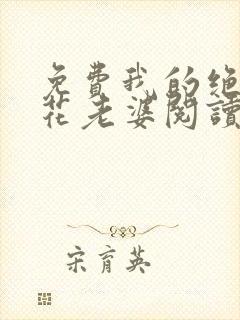 免費我的绝
花老婆閱讀
宋育英